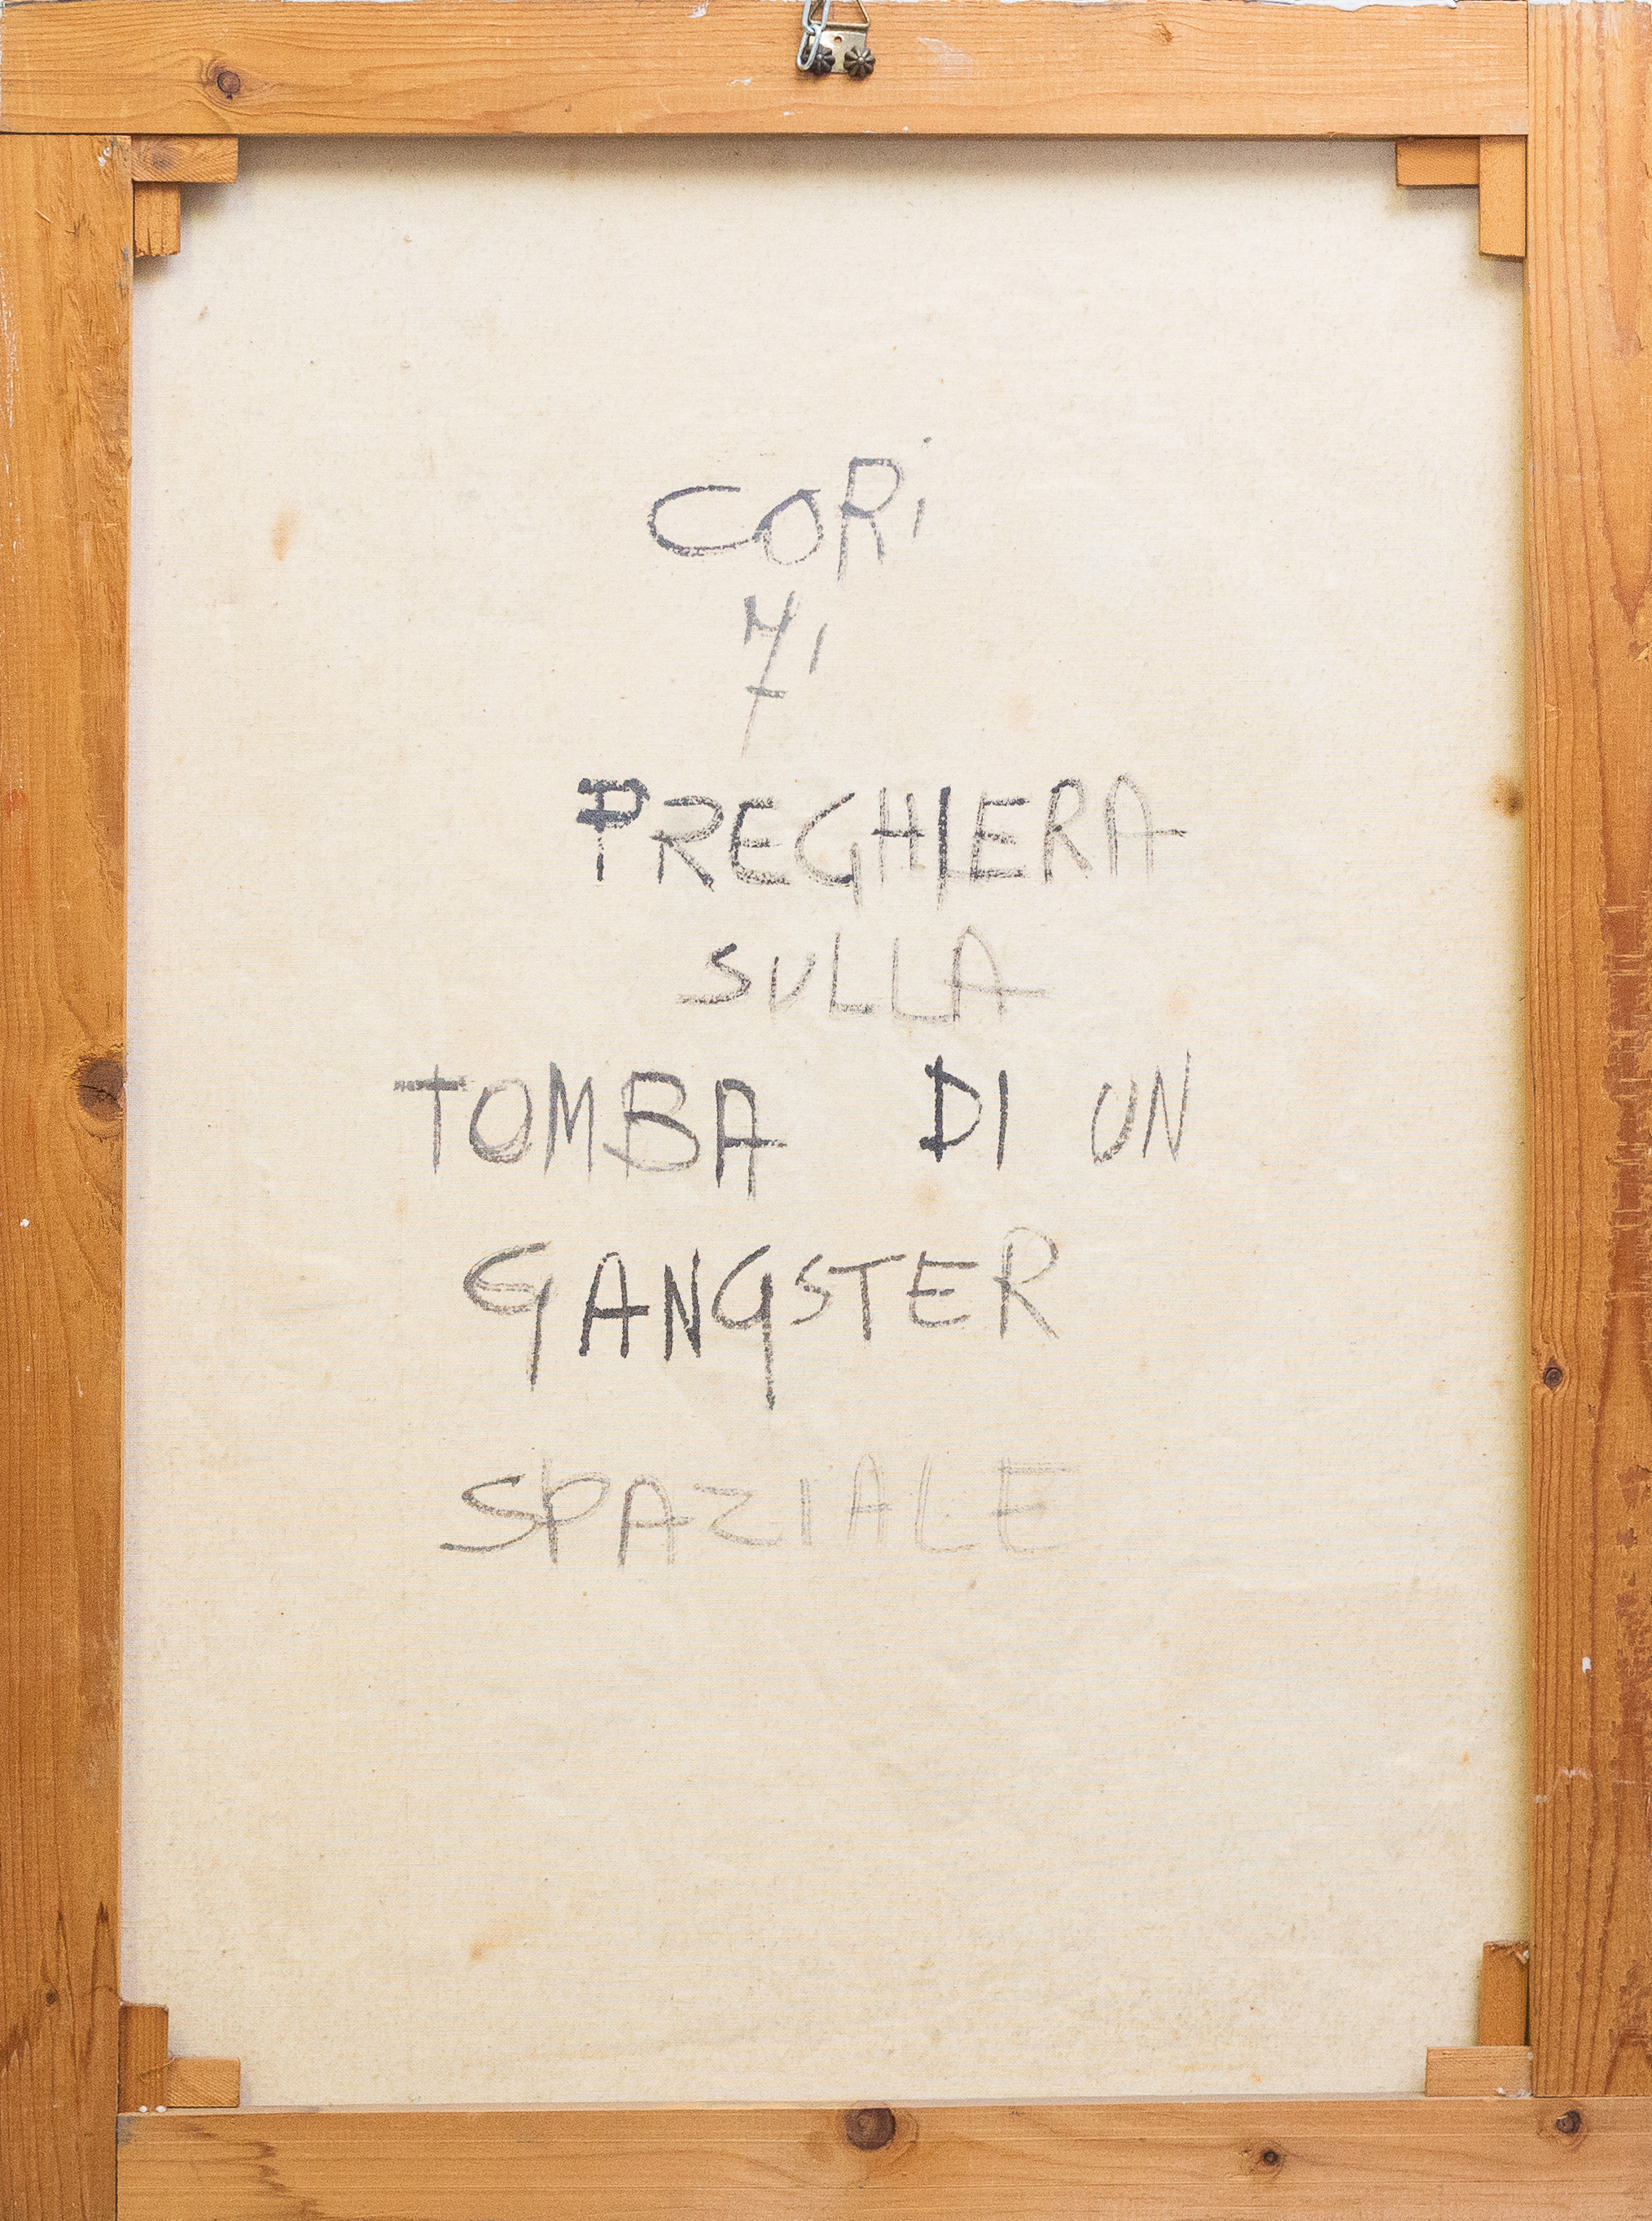 CORi
71
PREGHIERA
SULLA
TOMBA DI UN
GANGSTER
SPAZIALE